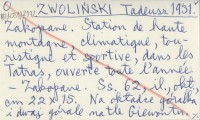 ZWOLIŃSKI Tadeusz 1931.
Zakopane. Station de haute
montagne, climatique, tou-
ristique et sportive, dans les
Tatras, ouverte toute l'année
- Zakopane. Ss. 62, il., obl,
cm 22 x 15. Na okładce góralka
i dwaj górale na tle Giewontu